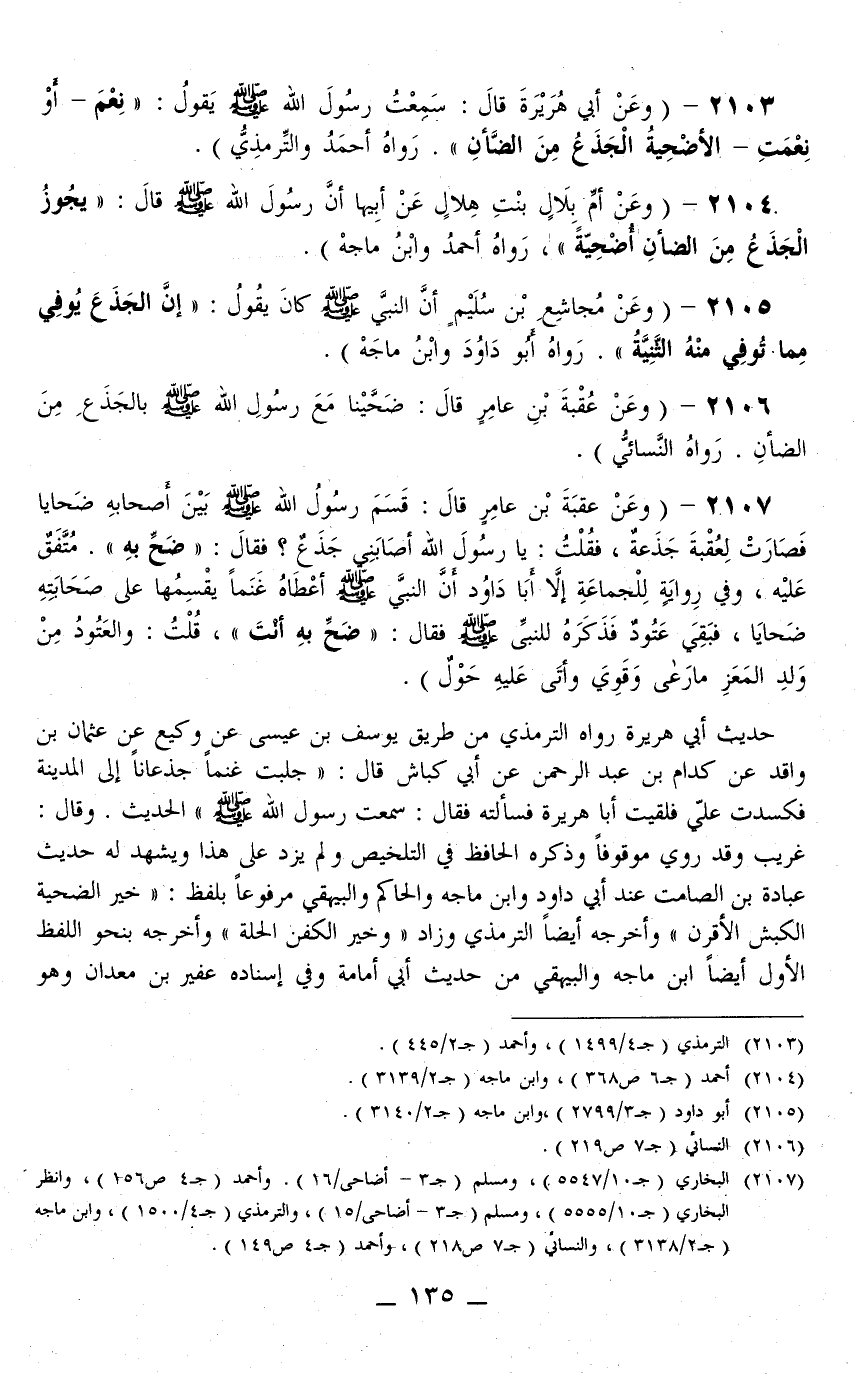 ٢١٠٣ – ( وعَنْ أبي هُرَيْرَةَ قالَ : سَمِعْتُ رسُولَ الله ﷺ يَقولُ : « نِعْمَ – أَوْ
نِعْمَتِ – الأضْحِيةُ الْجَذَعُ مِنَ الضَّأنِ » . رَواهُ أحمَدُ والتِّرمذِيُّ ) .
٢١٠٤ – ( وعَنْ أمِّ بِلَالٍ بنْتِ هِلالٍ عَنْ أبيها أنَّ رسُولَ الله ﷺ قالَ : « يجُوزُ
الْجَذَعُ مِنَ الضأنِ أُضْحِيّةً » ، رَواهُ أحمدُ وابْنُ ماجهْ ) .
٢١٠٥ – ( وعَنْ مُجاشِعِ بْن سُلَيْمٍ أنَّ النبيَّ ﷺ كانَ يقُولُ : « إنَّ الجَذَعَ يُوفِي
مِما تُوفِي منْهُ الثَّنِيَّةُ » . رَواهُ أَبُو دَاوُدَ وابْنُ ماجَهْ ) .
٢١٠٦ – ( وعَنْ عُقْبةَ بْنِ عامِرٍ قالَ : ضَحَّيْنا مَعَ رسُولِ الله ﷺ بالجَذَعِ مِنَ
الضأنِ . رَواهُ النَّسائيُّ ) .
٢١٠٧ – ( وعَنْ عقبَةَ بْن عامِرٍ قالَ : قَسَمَ رسُولُ الله ﷺ بَيْنَ أَصحابهِ ضَحايا
فَصَارَتْ لِعُقْبةَ جَذَعةٌ ، فقُلْتُ : يا رسُولَ الله أصَابَنِي جَذَعٌ ؟ فقالَ : « ضَحِّ بهِ » . مُتَّفَقٌ
عَلَيْه ، وفي رِوايَةٍ لِلْجماعَةِ إلَّا أَبَا دَاوُد أَنَّ النبيَّ ﷺ أعْطَاهُ غَنَماً يقْسِمُها على صَحَابَتِهِ
ضَحايَا ، فبَقِيَ عَتُودٌ فَذَكَرَهُ للنبيِّ ﷺ فقال : « ضَحِّ بهِ أنْتَ » ، قُلْتُ : والعَتُودُ مِنْ
وَلدِ المَعَزِ مارَعٰى وَقَوِيَ وأتَى عَليهِ حَوْلٌ ) .
حديث أبي هريرة رواه الترمذي من طريق يوسف بن عيسى عن وكيع عن عثمان بن
واقد عن كدام بن عبد الرحمن عن أبي كباش قال : « جلبت غنماً جذعاناً إلى المدينة
فكسدت عليّ فلقيت أبا هريرة فسألته فقال : سمعت رسول الله ﷺ » الحديث . وقال :
غريب وقد روي موقوفاً وذكره الحافظ في التلخيص ولم يزد على هذا ويشهد له حديث
عبادة بن الصامت عند أبي داود وابن ماجه والحاكم والبيهقي مرفوعاً بلفظ : « خير الضحية
الكبش الأقرن » وأخرجه أيضاً الترمذي وزاد « وخير الكفن الحلة » وأخرجه بنحو اللفظ
الأول أيضاً ابن ماجه والبيهقي من حديث أبي أمامة وفي إسناده عفير بن معدان وهو
(٢١٠٣) الترمذي ( جـ١٤٩٩/٤ ) ، وأحمد ( جـ٤٤٥/٢ ) .
(٢١٠٤) أحمد ( جـ٦ ص٣٦٨ ) ، وابن ماجه ( جـ٣١٣٩/٢ ) .
(٢١٠٥) أبو داود ( جـ٢٧٩٩/٣ ) ،وابن ماجه ( جـ٣١٤٠/٢ ) .
(٢١٠٦) النسائي ( جـ٧ ص٢١٩ ) .
(٢١٠٧) البخاري ( جـ٥٥٤٧/١٠ ) ، ومسلم ( جـ٣ – أضاحى/١٦ ) . وأحمد ( جـ٤ ص١٥٦ ) ، وانظر
البخاري ( جـ٥٥٥٥/١٠ ) ، ومسلم ( جـ٣ – أضاحى/١٥ ) ، والترمذي ( جـ١٥٠٠/٤ ) ، وابن ماجه
( جـ٣١٣٨/٢ ) ، والنسائي ( جـ٧ ص٢١٨ ) ، وأحمد ( جـ٤ ص١٤٩ ) .
– ١٣٥ –